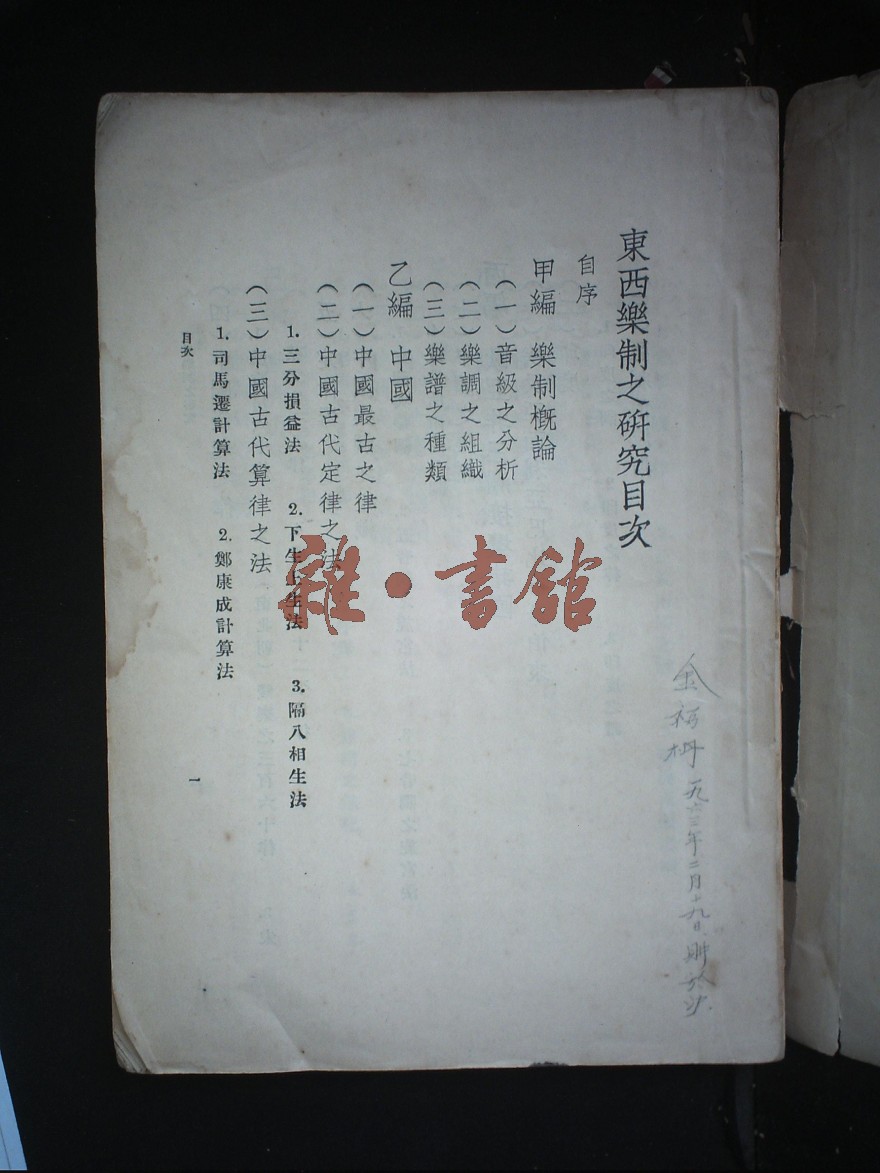 東西樂制之硏究目次
自序
甲編 樂制槪論
(一)音級之分析
(二)樂調之組織
(三)樂譜之種類
乙編 中國
(一)中國最古之律
(二)中國古代定律之法
1. 三分損益法 2. 下生上生法 3. 隔八相生法
(三)中國古代算律之法
1. 司馬遷計算法 2. 鄭康成計算法
目次
一
雜·書館
一九六三年二月十九日